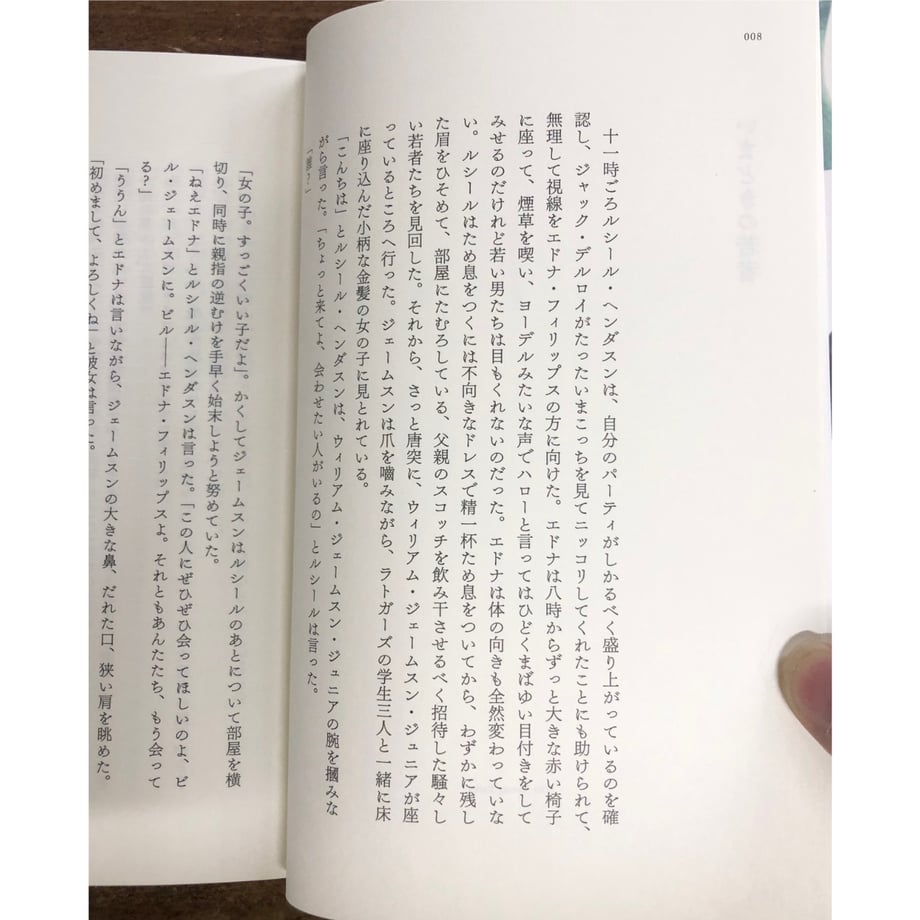 008
十一時ごろルシール・ヘンダスンは、自分のパーティがしかるべく盛り上がっているのを確
認し、ジャック・デルロイがたったいまこっちを見てニッコリしてくれたことにも助けられて、
無理して視線をエドナ・フィリップスの方に向けた。エドナは八時からずっと大きな赤い椅子
に座って、煙草を喫い、ヨーデルみたいな声でハローと言ってはひどくまばゆい目付きをして
みせるのだけれど若い男たちは目もくれないのだった。エドナは体の向きも全然変わっていな
い。ルシールはため息をつくには不向きなドレスで精一杯ため息をついてから、わずかに残し
た眉をひそめて、部屋にたむろしている、父親のスコッチを飲み干させるべく招待した騒々し
い若者たちを見回した。それから、さっと唐突に、ウィリアム・ジェームスン・ジュニアが座
っているところへ行った。ジェームスンは爪を嚙みながら、ラトガーズの学生三人と一緒に床
に座り込んだ小柄な金髪の女の子に見とれている。
「こんちは」とルシール・ヘンダスンは、ウィリアム・ジェームスン・ジュニアの腕を摑みな
がら言った。「ちょっと来てよ、会わせたい人がいるの」とルシールは言った。
「誰?」
「女の子。すっごくいい子だよ」。かくしてジェームスンはルシールのあとについて部屋を横
切り、同時に親指の逆むけを手早く始末しようと努めていた。
「ねえエドナ」とルシール・ヘンダスンは言った。「この人にぜひぜひ会ってほしいのよ、ビ
ル・ジェームスンに。ビル――エドナ・フィリップスよ。それともあんたたち、もう会って
る?」
「ううん」とエドナは言いながら、ジェームスンの大きな鼻、だれた口、狭い肩を眺めた。
「初めまして、よろしくね」と彼女は言った。